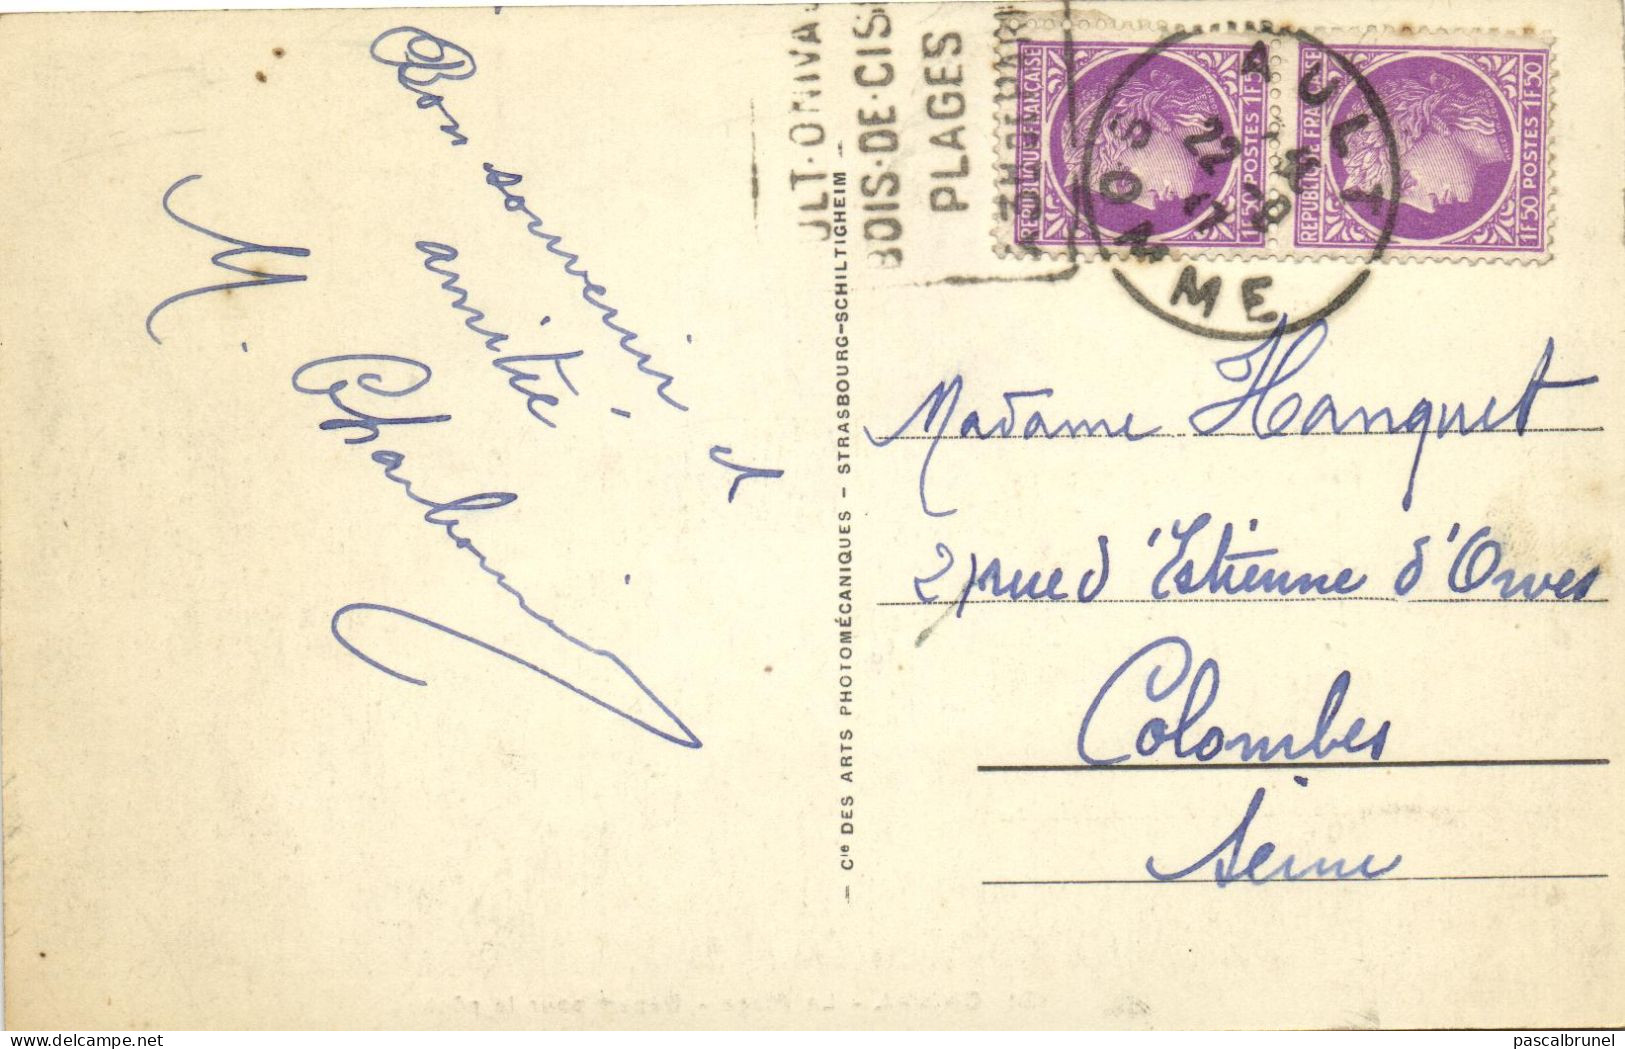 Bon souvenir et
amitié
M. Charbonnier
— Cie DES ARTS PHOTOMÉCANIQUES — STRASBOURG-SCHILTIGHEIM —
ULT·ONIVA
BOIS·DE·CIS
PLAGES
REPUBLIQUE FRANÇAISE
1F50 POSTES 1F50
REPUBLIQUE FRANÇAISE
1F50 POSTES 1F50
AULT
SOMME
22
Madame Hanquet
2, rue d'Estienne d'Orves
Colombes
Seine
pascalbrunel